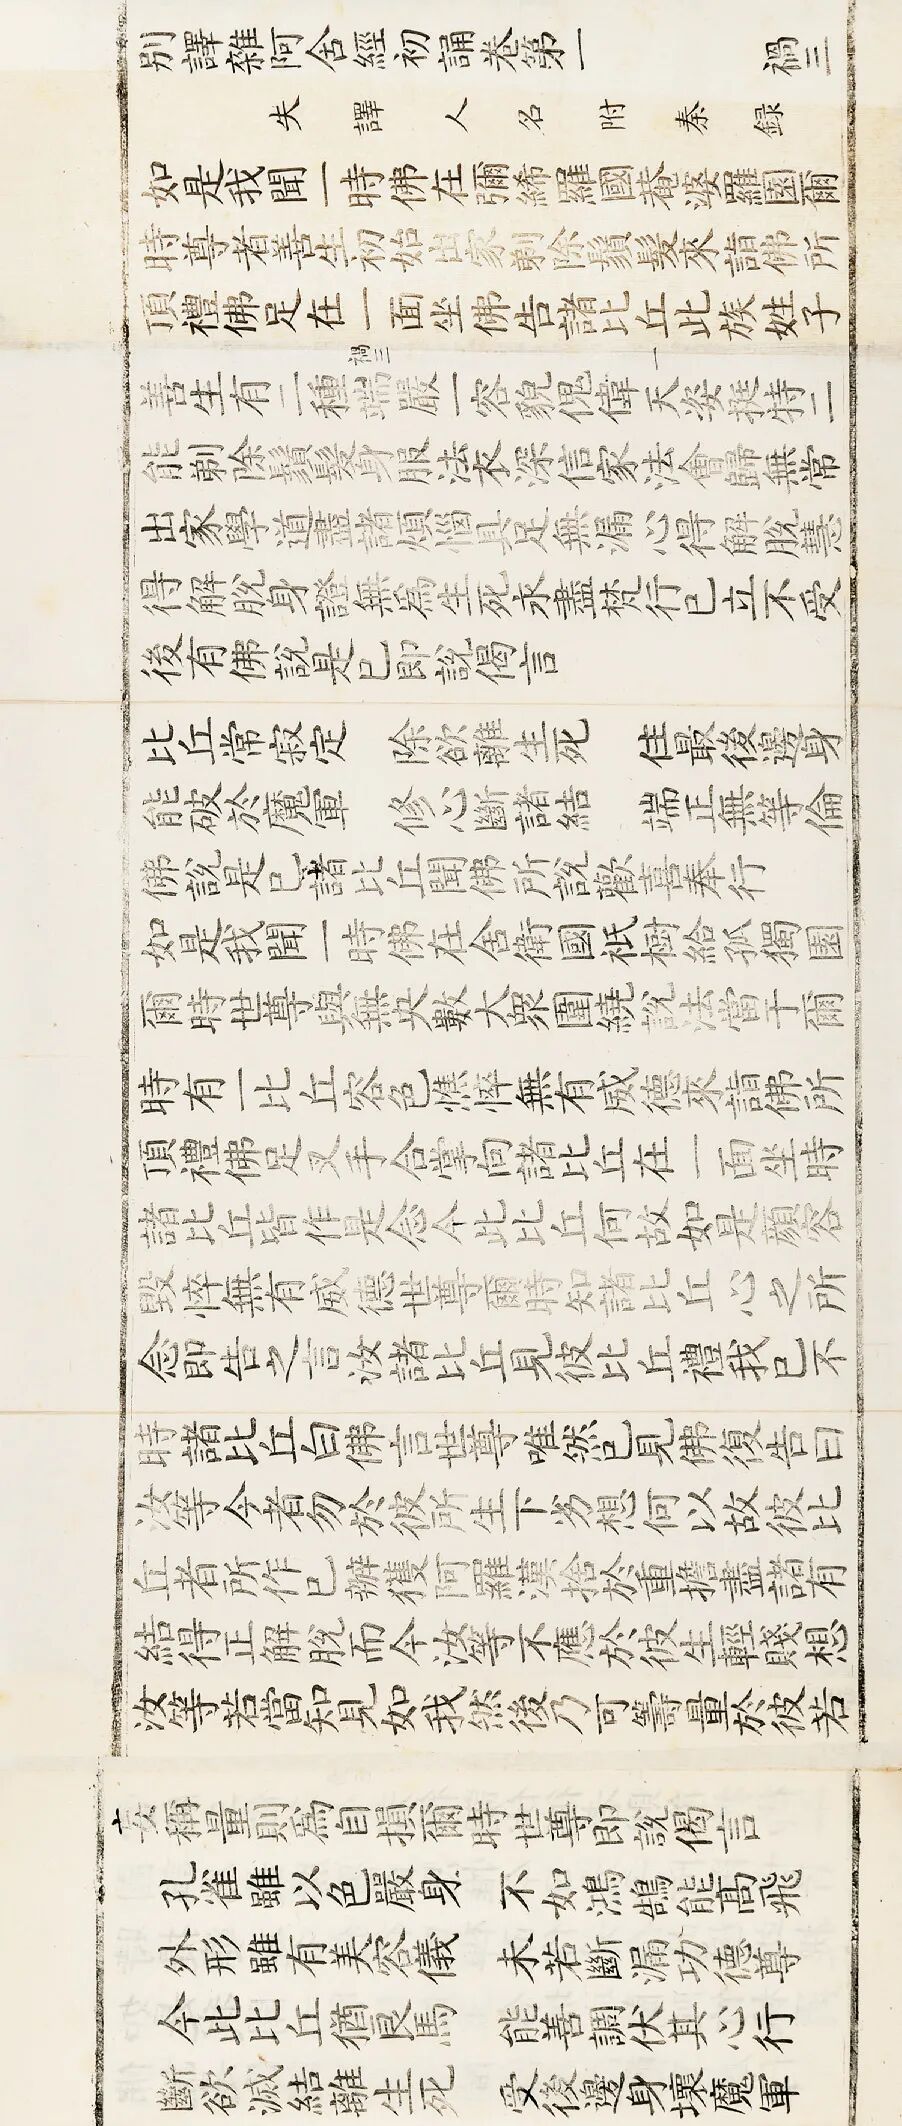 別譯雜阿含經初誦卷第一 禍三
失譯人名附秦録
如是我聞一時佛在彌絺羅國菴婆羅園爾
時尊者善生初始出家剃除鬚髮來詣佛所
頂禮佛足在一面坐佛告諸比丘此族姓子
禍三 一
善生有二種端嚴一容貌傀偉天姿挺特二
能剃除鬚髮身服法衣深信家法會歸無常
出家學道盡諸煩惱具足無漏心得解脫慧
得解脫身證無爲生死永盡梵行已立不受
後有佛說是已即說偈言
比丘常寂定 除欲離生死 住最後邊身
能破於魔軍 修心斷諸結 端正無等倫
佛說是已諸比丘聞佛所說歡喜奉行
如是我聞一時佛在舍衛國祇樹給孤獨園
爾時世尊與無央數大衆圍繞說法當于爾
時有一比丘容色憔悴無有威德來詣佛所
頂禮佛足叉手合掌向諸比丘在一面坐時
諸比丘皆作是念今此比丘何故如是顔容
毀悴無有威德世尊爾時知諸比丘心之所
念即告之言汝諸比丘見彼比丘禮我已不
時諸比丘白佛言世尊唯然已見佛復告曰
汝等今者勿於彼所生下劣想何以故彼比
丘者所作已辦獲阿羅漢捨於重擔盡諸有
結得正解脫而今汝等不應於彼生輕賤想
汝等若當知見如我然後乃可籌量於彼若
妄稱量則爲自損爾時世尊即說偈言
孔雀雖以色嚴身 不如鴻鵠能高飛
外形雖有美容儀 未若斷漏功德尊
今此比丘猶良馬 能善調伏其心行
斷欲滅結離生死 受後邊身壞魔軍